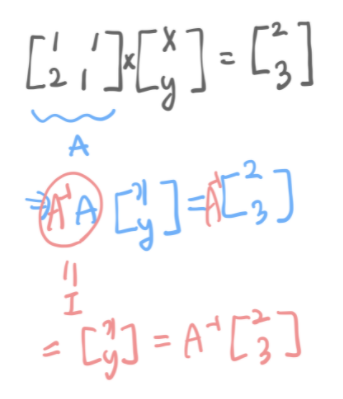 [1 1
2 1] × [x
y] = [2
3]
A
⇒ A⁻¹A [x
y] = A⁻¹ [2
3]
=
I
= [x
y] = A⁻¹ [2
3]